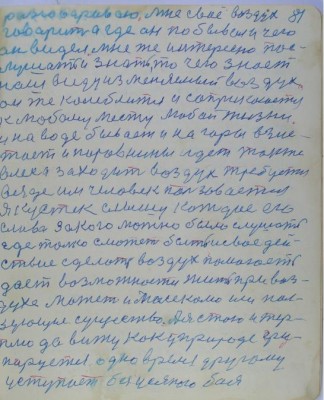 разговариваю, мне своё воздух 81
говорит а где он побывал и чего
он видел, мне же интересно пос-
лушать и знать то чего знает
наш видуизменяемый воздух
он же колеблится и соприкасает
к любому месту любой жизни
и на воде бывает и на горы взле-
тает и по равнины идет также
в леса заходит воздух требуется
везде им человек ползоваетсия
Я кустек слышу каждое его
слова Якого можно было слушать
где толко сможет быть свое дей-
ствие сделать воздух помогаеть
дает возможности жить при воз-
духе может и Маленкому или пол-
зующие существо,
да вижу как природе
одно время другому
уступает без всякого боя